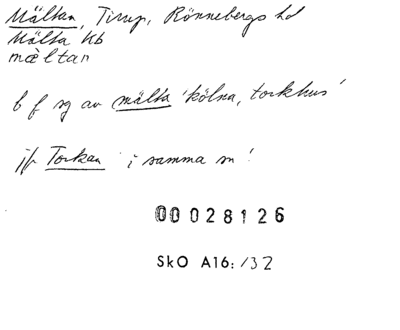 Mältan, Tirup, Rönnebergs hd
Mälta Kb
mæltan
b f sg av mälta 'kölna, torkhus'
jfr Torkan i samma sn!
00028126
SkO A16:132